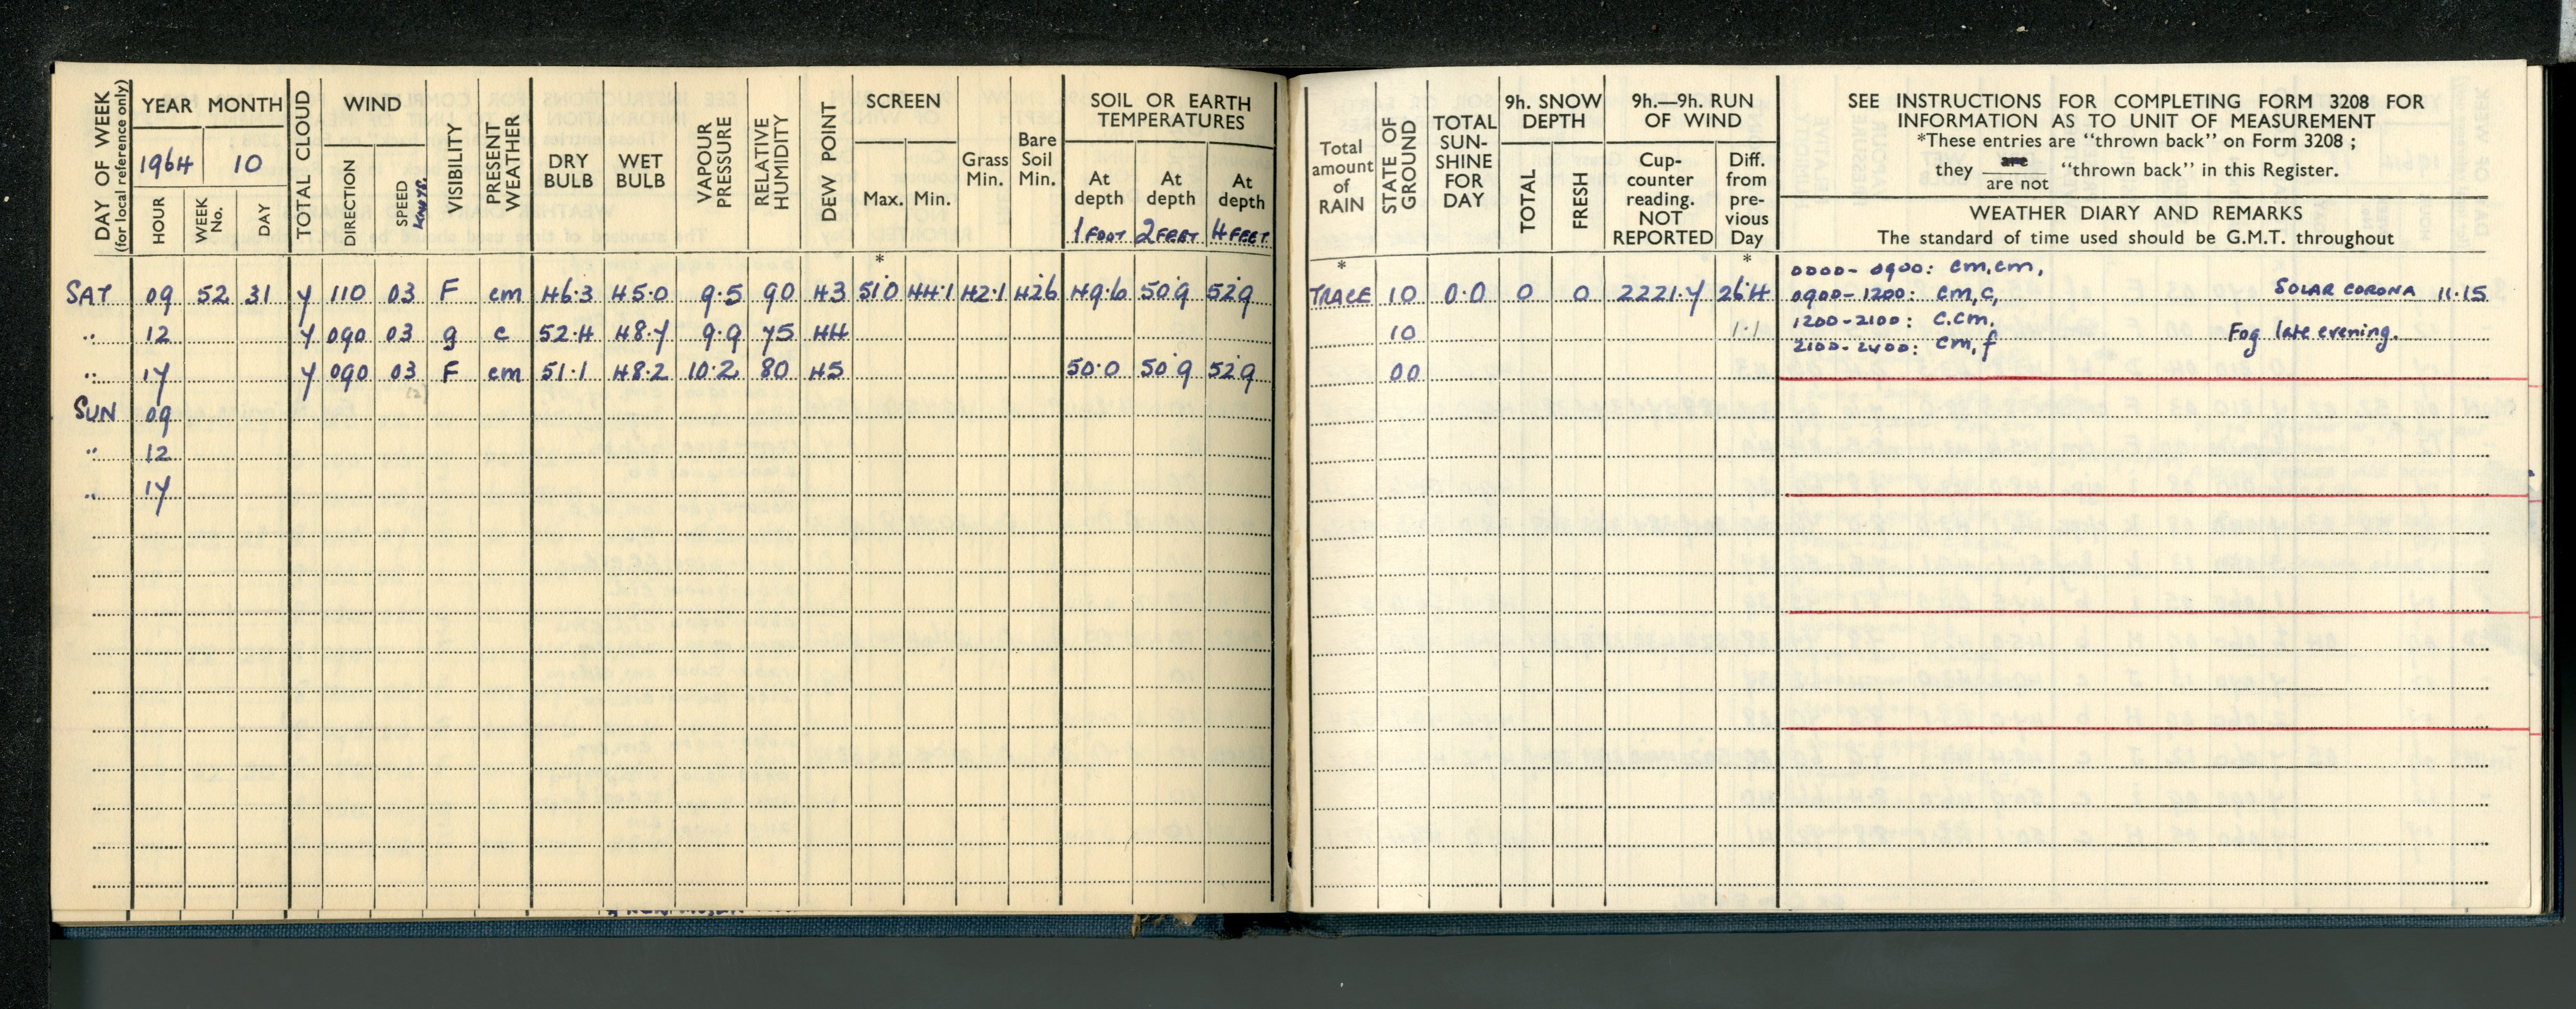 DAY OF WEEK (for local reference only) YEAR MONTH TOTAL CLOUD WIND VISIBILITY PRESENT WEATHER DRY BULB WET BULB VAPOUR PRESSURE RELATIVE HUMIDITY DEW POINT SCREEN Grass Min. Bare Soil Min. SOIL OR EARTH TEMPERATURES
1964 10
HOUR WEEK No. DAY DIRECTION SPEED KNOTS. Max. Min. At depth At depth At depth
1 FOOT 2 FEET 4 FEET
*
SAT 09 52 31 7 110 03 F cm 46.3 45.0 9.5 90 43 51.0 44.1 42.1 42.6 49.6 50.9 52.9
" 12 7 090 03 g c 52.4 48.7 9.9 75 44
" 17 7 090 03 F cm 51.1 48.2 10.2 80 45 50.0 50.9 52.9
SUN 09
" 12
" 17
Total amount of RAIN STATE OF GROUND TOTAL SUN-SHINE FOR DAY 9h. SNOW DEPTH 9h.—9h. RUN OF WIND
TOTAL FRESH Cup-counter reading. NOT REPORTED Diff. from pre-vious Day
* *
TRACE 10 0.0 0 0 2221.7 26.4
10 1.1
00
SEE INSTRUCTIONS FOR COMPLETING FORM 3208 FOR
INFORMATION AS TO UNIT OF MEASUREMENT
*These entries are "thrown back" on Form 3208 ;
they are / are not "thrown back" in this Register.
WEATHER DIARY AND REMARKS
The standard of time used should be G.M.T. throughout
0000- 0900: cm,cm,
0900-1200: cm,c, SOLAR CORONA 11.15
1200-2100: c.cm, Fog late evening.
2100-2400: cm,f